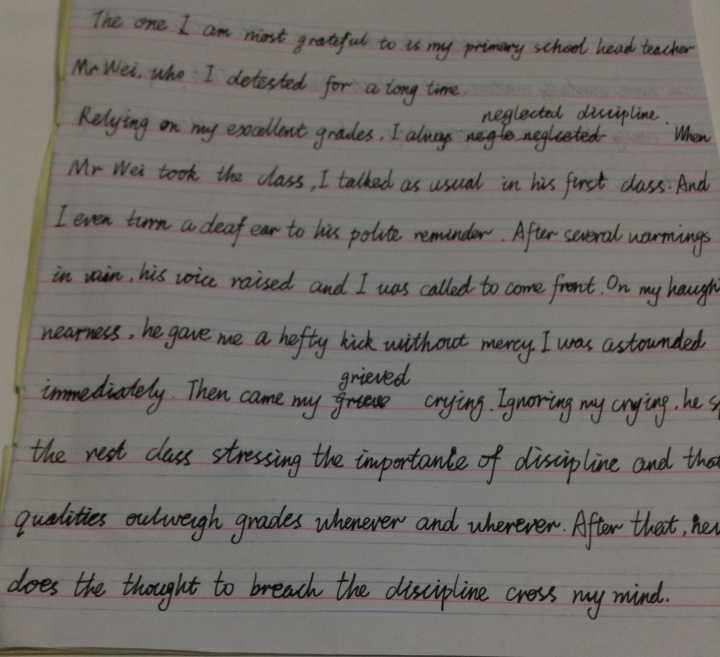 The one I am most grateful to is my primary school head teacher
Mr Wei, who I detested for a long time.
neglected discipline.
Relying on my excellent grades, I always negle neglected When
Mr Wei took the class, I talked as usual in his first class. And
I even turn a deaf ear to his polite reminder. After several warmings
in vain, his voice raised and I was called to come front. On my haugh
nearness, he gave me a hefty kick without mercy. I was astounded
grieved
immediately. Then came my grieve crying. Ignoring my crying, he s
the rest class stressing the importance of discipline and that
qualities outweigh grades whenever and wherever. After that, nev
does the thought to breach the discipline cross my mind.